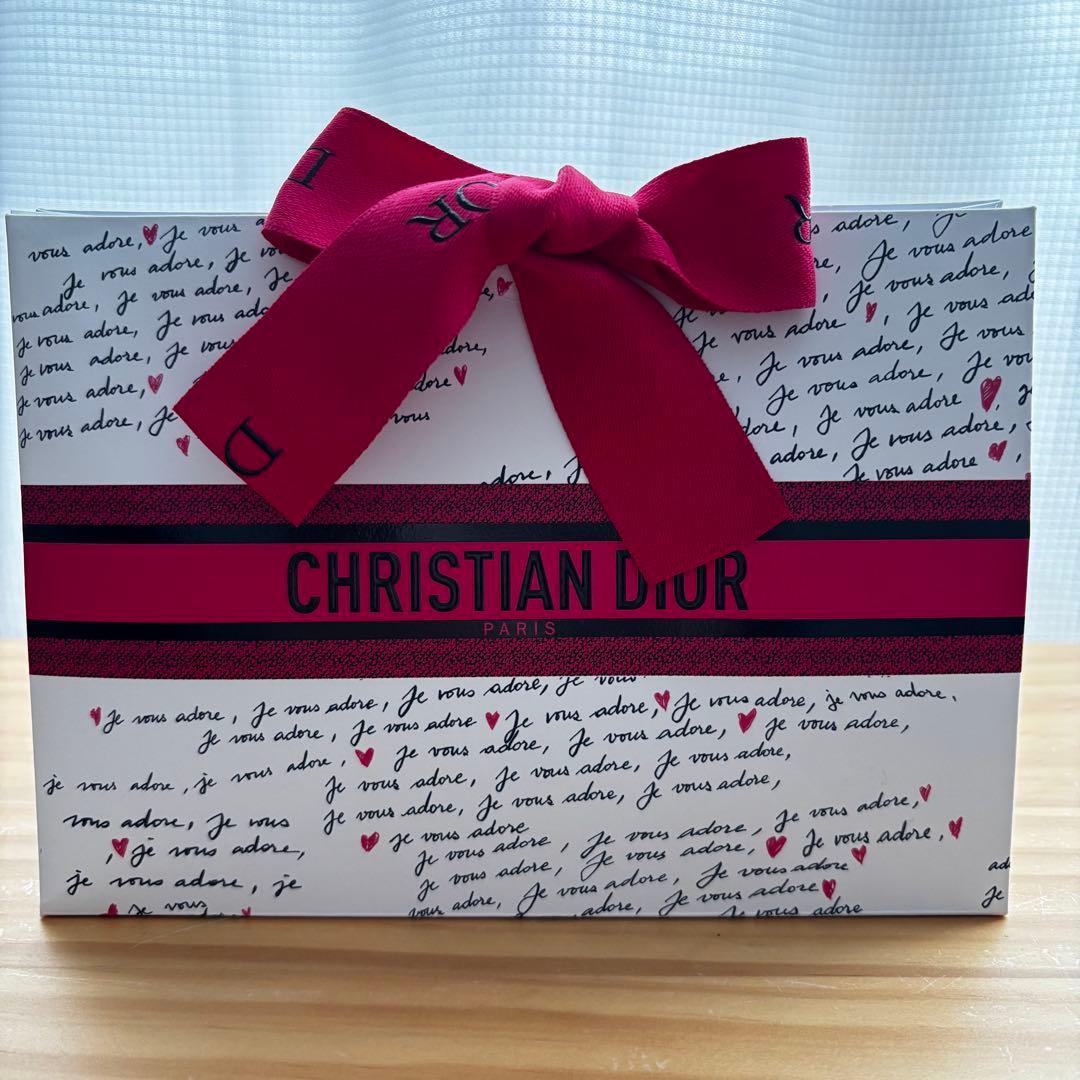 D
OR
R
D
vous adore, Je vous
Je vous adore, Je
vous adore, Je vous adore, Je
Je vous adore, Je vous
Je vous adore, Je vous
Je vous adore, Je
Je vous adore, Je
adore,
adore
vous
adore,
adore, Je vous adore
Je vous adore,
Je vous adore,
Je vous adore, Je vous
Je vous adore, Je vous
Je vous adore, Je vous adore
adore, Je vous adore,
adore, Je vous adore,
CHRISTIAN DIOR
PARIS
Je vous adore, Je vous adore, Je vous adore, je vous
Je vous adore, Je vous adore Je vous adore, Je vous adore, je vous adore,
je vous adore, je vous adore, Je vous adore, Je vous adore, Je vous adore,
Je vous adore, Je vous adore, Je vous adore,
vous adore, Je vous Je vous adore, Je vous adore, Je vous adore,
, je vous adore, Je vous adore
je vous adore, je Je vous adore, Je vous adore, Je vous adore,
Je vous adore, Je vous adore, Je vous adore,
Je vous vous adore, Je vous adore, Je vous adore
adore, Je vous adore
Je vous adore
Je